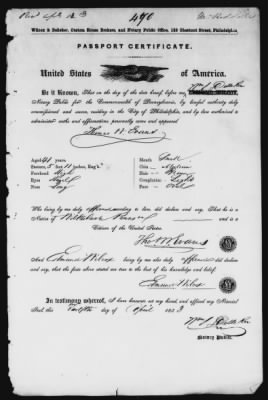 490
Wilson & Delleker, Custom House Brokers, and Notary Public Office, 138 Chestnut Street, Philadelphia.
PASSPORT CERTIFICATE.
United States of America.
Be it Known, That on the day of the date hereof before me,
Notary Public for the Commonwealth of Pennsylvania, by lawful authority duly
commissioned and sworn, residing in the City of Philadelphia, and by law authorized to
administer oaths and affirmations personally came and appeared
Thomas W. Evans
Aged 41 years
Stature, 5 feet 11 inches, Eng'h
Forehead High
Eyes
Nose
Mouth Small
Chin Medium
Hair
Complexion Light
Face Oval
Who being by me duly affirmed according to law, did declare and say, That he is a
Native of
Citizen of the United States.
Tho W Evans
And Edmund Wilcox being by me also duly affirmed did declare
and say, that the facts above stated are true to the best of his knowledge and belief.
Edmund Wilcox
In testimony whereof, I have hereunto set my hand and affixed my Notarial
Seal, this Twelfth day of April 1853
Notary Public.